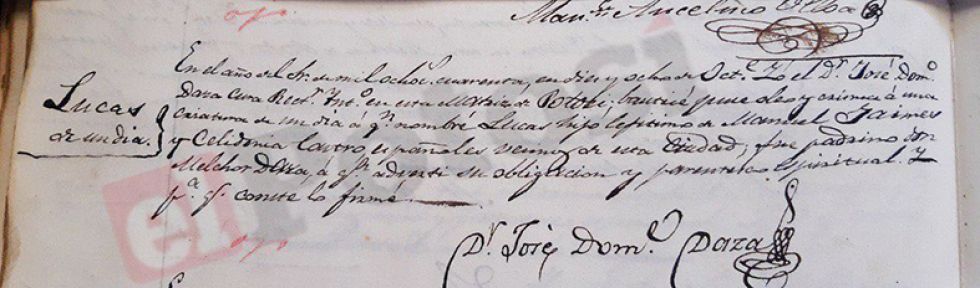 Man.ⁿ Anselmo
En el año del Sr. de mil ochoc. cuarenta, en diez y ocho de Oct.ᵉ Yó el D.ʳ José Dom.º
Daza Cura Rect.ʳ Int.º en esta Matriz de Potosí; bauticé puse oleo y crisma á una
criatura de un dia á q.ⁿ nombré Lucas hijo lejitimo de Manuel Jaimes
y Celidonia Castro españoles vecinos de esta Ciudad; fue padrino don
Melchor Daza, á q.ⁿ advertí su obligacion y parentesco espiritual. Y
p.ª q.ᵉ conste lo firmé.
Lucas
de un dia.
D.ʳ José Dom.º Daza
el Potosí